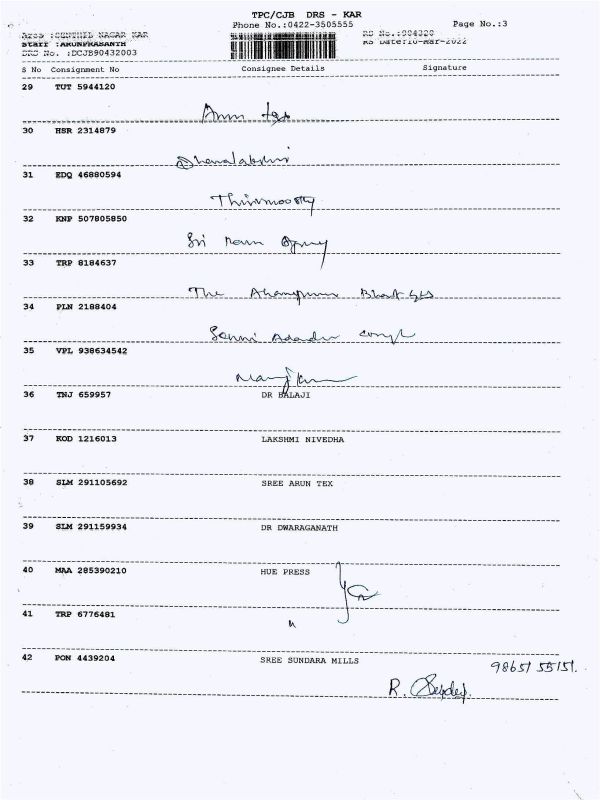 TPC/CJB DRS - KAR
Phone No.:0422-3505555 Page No.:3
Area :SENTHIL NAGAR KAR RS No.:904320
Staff :ARUNPRASANTH RS Date:10-Mar-2022
DRS No. :DCJB90432003
S No Consignment No Consignee Details Signature
29 TUT 5944120
Arun tex
30 HSR 2314879
Dhanalakshmi
31 EDQ 46880594
Thirumoorthy
32 KNP 507805850
Sri Ram Agency
33 TRP 8184637
The
34 PLN 2188404
35 VPL 938634542
36 TNJ 659957 DR BALAJI
37 KOD 1216013 LAKSHMI NIVEDHA
38 SLM 291105692 SREE ARUN TEX
39 SLM 291159934 DR DWARAGANATH
40 MAA 285390210 HUE PRESS
41 TRP 6776481
"
42 PON 4439204 SREE SUNDARA MILLS
98651 55151.
R.